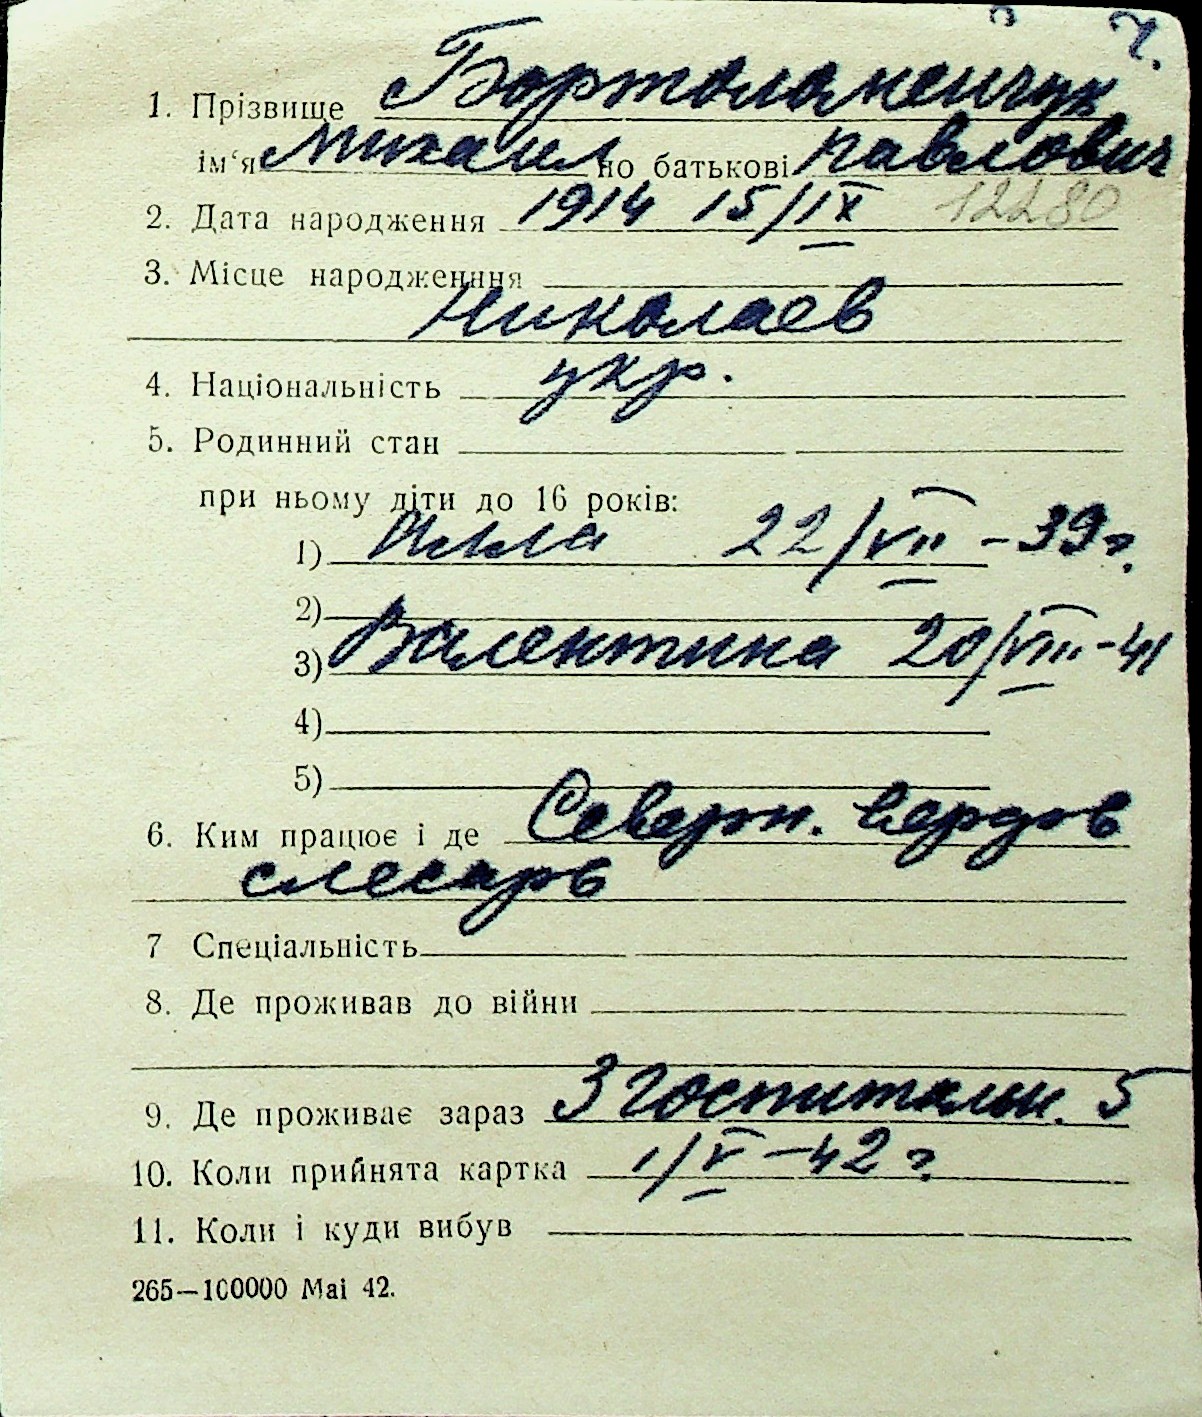 ч.
1. Прізвище Бортоломенчук
ім‘я Михаил по батькові Павлович
2. Дата народження 1914 15/IX 12280
3. Місце народженння
Николаев
4. Національність укр.
5. Родинний стан
при ньому діти до 16 років:
1) Илла 22/VII – 39 г.
2)
3) Валентина 20/VIII – 41
4)
5)
6. Ким працює і де Северн. вердов
слесарь
7 Спеціальність
8. Де проживав до війни
9. Де проживає зараз 3 Госпитальн. 5
10. Коли прийнята картка 1/V – 42 г.
11. Коли і куди вибув
265—100000 Mai 42.